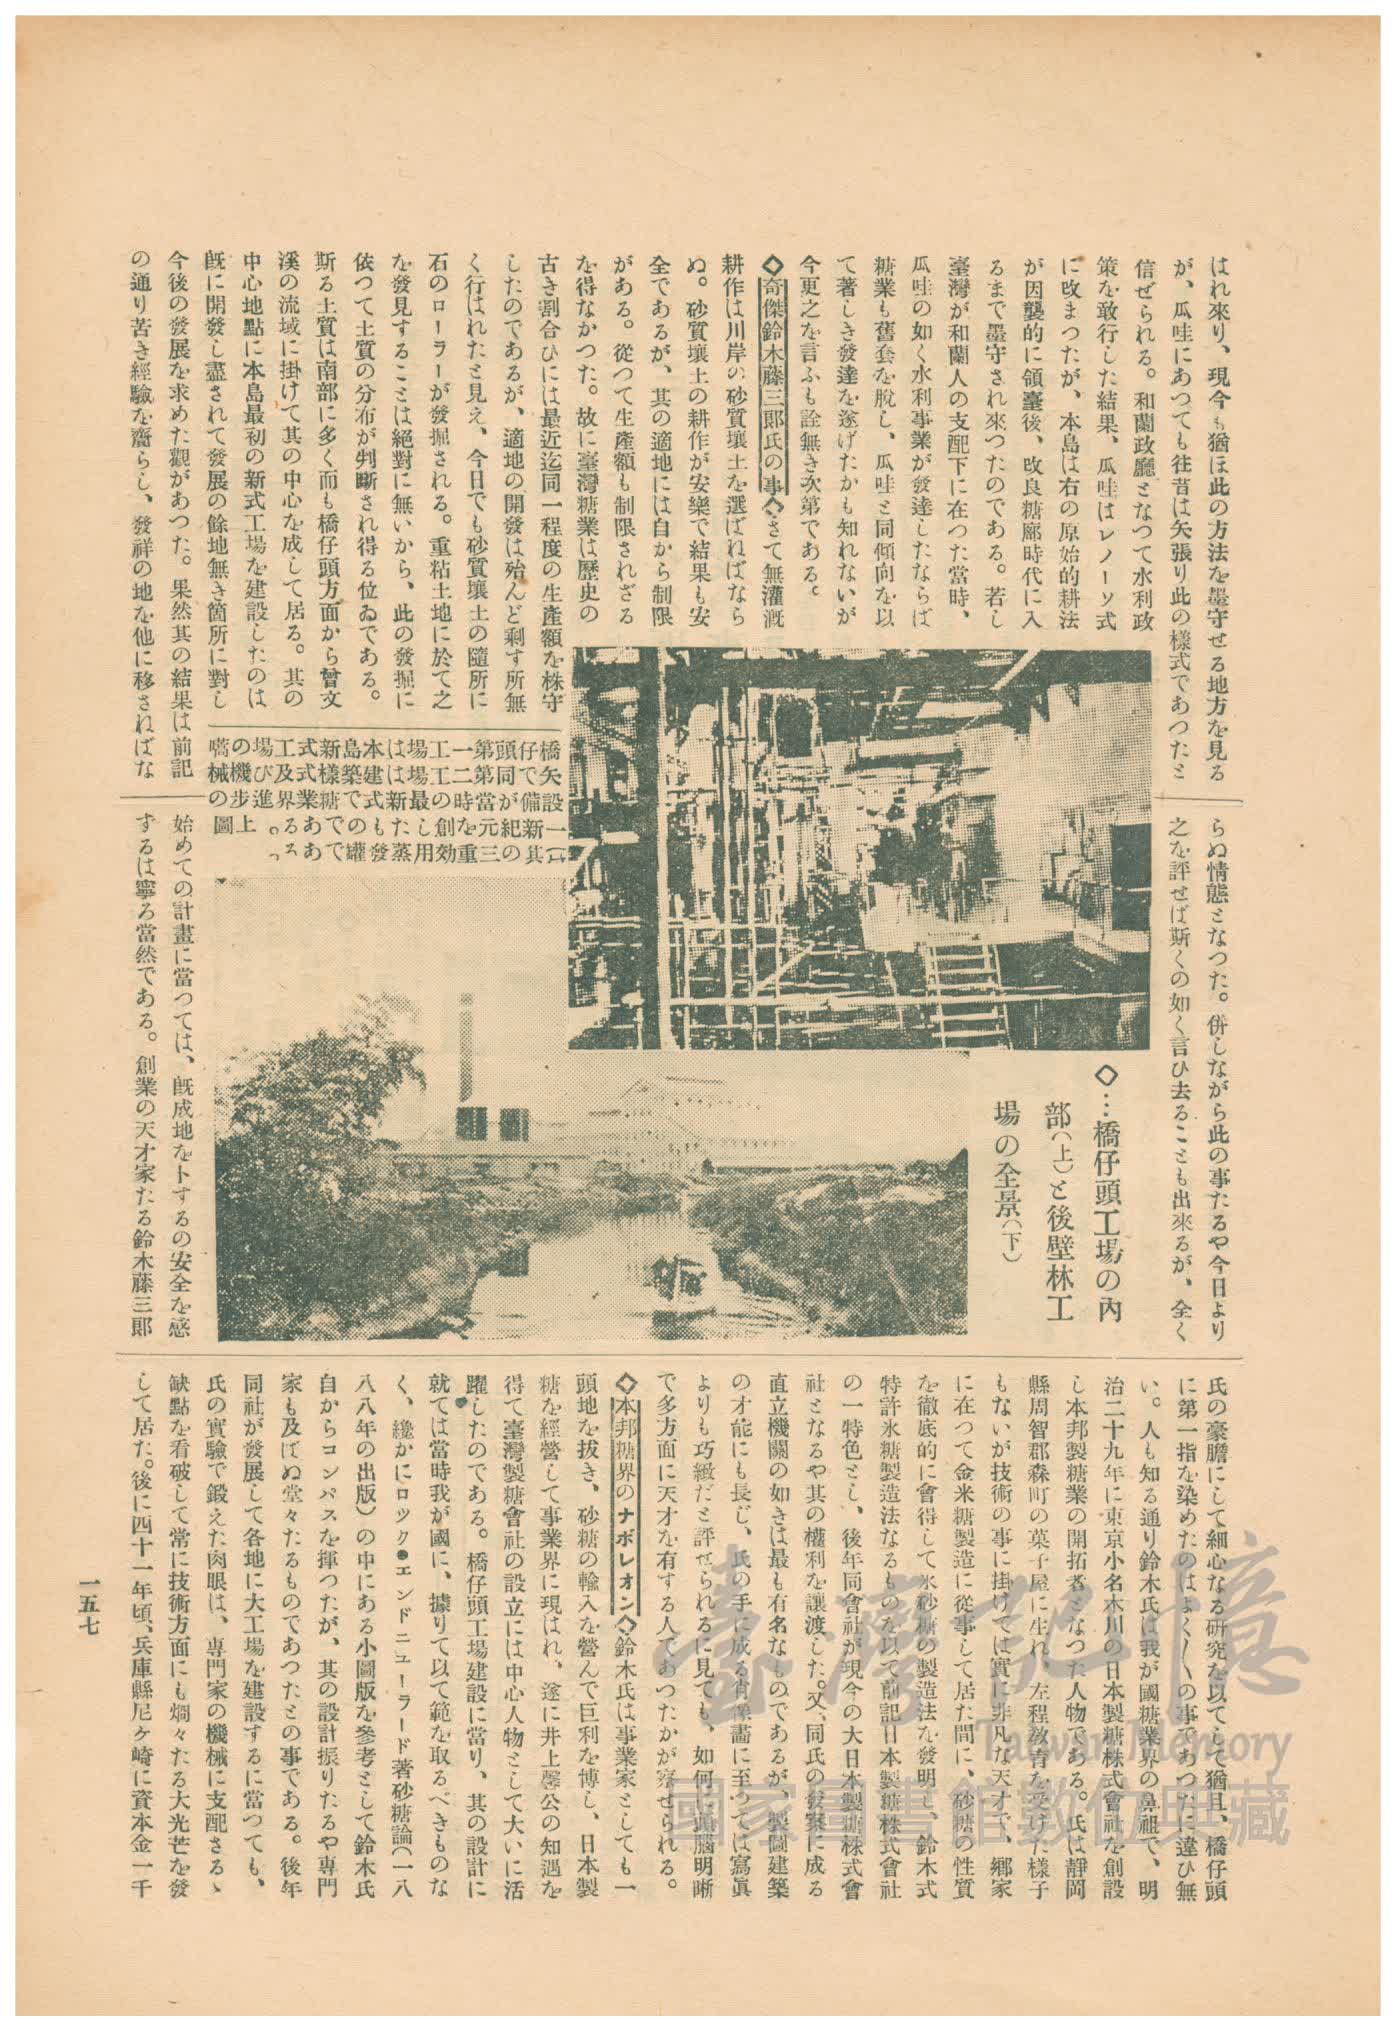 はれ來り、現今も猶ほ此の方法を墨守せる地方を見る
が、瓜哇にあつても往昔は矢張り此の樣式であつたと
信ぜられる。和蘭政廳となつて水利政
策を敢行した結果、瓜哇はレノーソ式
に改まつたが、本島は右の原始的耕法
が因襲的に領臺後、改良糖廍時代に入
るまで墨守され來つたのである。若し
臺灣が和蘭人の支配下に在つた當時、
瓜哇の如く水利事業が發達したならば
糖業も舊套を脫し、瓜哇と同傾向を以
て著しき發達を遂げたかも知れないが
今更之を言ふも詮無き次第である。
◇奇傑鈴木藤三郎氏の事◇さて無灌漑
耕作は川岸の砂質壤土を選ばねばなら
ぬ。砂質壤土の耕作が安樂で結果も安
全であるが、其の適地には自から制限
がある。從つて生產額も制限されざる
を得なかつた。故に臺灣糖業は歷史の
古き割合ひには最近迄同一程度の生產額を株守
したのであるが、適地の開發は殆んど剩す所無
く行はれたと見え、今日でも砂質壤土の隨所に
石のローラーが發掘される。重粘土地に於て之
を發見することは絕對に無いから、此の發掘に
依つて土質の分布が判斷され得る位ゐである。
斯る土質は南部に多く而も橋仔頭方面から曾文
溪の流域に掛けて其の中心を成して居る。其の
中心地點に本島最初の新式工場を建設したのは
旣に開發し盡されて發展の餘地無き箇所に對し
今後の發展を求めた觀があつた。果然其の結果は前記
の通り苦き經驗を齎らし、發祥の地を他に移さねばな
らぬ情態となつた。併しながら此の事たるや今日より
之を評せば斯くの如く言ひ去ることも出來るが、全く
◇…橋仔頭工場の內
部(上)と後壁林工
場の全景(下)
橋仔頭第一工場は本島新式工場の嚆
矢で同第二工場は建築樣式及び機械
設備が當時の最新式で糖業界進步の
一新紀元を創したものである。上圖
始めての計畫に當つては、旣成地を卜するの安全を感
ずるは寧ろ當然である。創業の天才家たる鈴木藤三郎
氏の豪膽にして細心なる研究を以てして猶且、橋仔頭
に第一指を染めたのはよく〱の事であつたに違ひ無
い。人も知る通り鈴木氏は我が國糖業界の鼻祖で、明
治二十九年に東京小名木川の日本製糖株式會社を創設
し本邦製糖業の開拓者となつた人物である。氏は靜岡
縣周智郡森町の菓子屋に生れ、左程敎育を受けた樣子
もないが技術の事に掛けては實に非凡な天才で、鄕家
に在つて金米糖製造に從事して居た間に、砂糖の性質
を徹底的に會得して氷砂糖の製造法を發明し、鈴木式
特許氷糖製造法なるものを以て前記日本製糖株式會社
の一特色とし、後年同會社が現今の大日本製糖株式會
社となるや其の權利を讓渡した。又、同氏の發案に成る
直立機關の如きは最も有名なものであるが、製圖建築
の才能にも長じ、氏の手に成る肖像畫に至つては寫眞
よりも巧緻だと評せられるに見ても、如何に頭腦明晰
で多方面に天才を有する人であつたかが察せられる。
◇本邦糖界のナボレオン◇鈴木氏は事業家としても一
頭地を拔き、砂糖の輸入を營んで巨利を博し、日本製
糖を經營して事業界に現はれ、遂に井上馨公の知遇を
得て臺灣製糖會社の設立には中心人物として大いに活
躍したのである。橋仔頭工場建設に當り、其の設計に
就ては當時我が國に、據りて以て範を取るべきものな
く、纔かにロツク●エンドニューラード著砂糖論(一八
八八年の出版)の中にある小圖版を參考として鈴木氏
自からコンパスを揮つたが、其の設計振りたるや專門
家も及ばぬ堂々たるものであつたとの事である。後年
同社が發展して各地に大工場を建設するに當つても、
氏の實驗で鍛えた肉眼は、專門家の機械に支配さるゝ
缺點を看破して常に技術方面にも爛々たる大光芒を發
して居た。後に四十一年頃、兵庫縣尼ヶ崎に資本金一千
一五七
臺灣記憶
Taiwan Memory
國家圖書館數位典藏